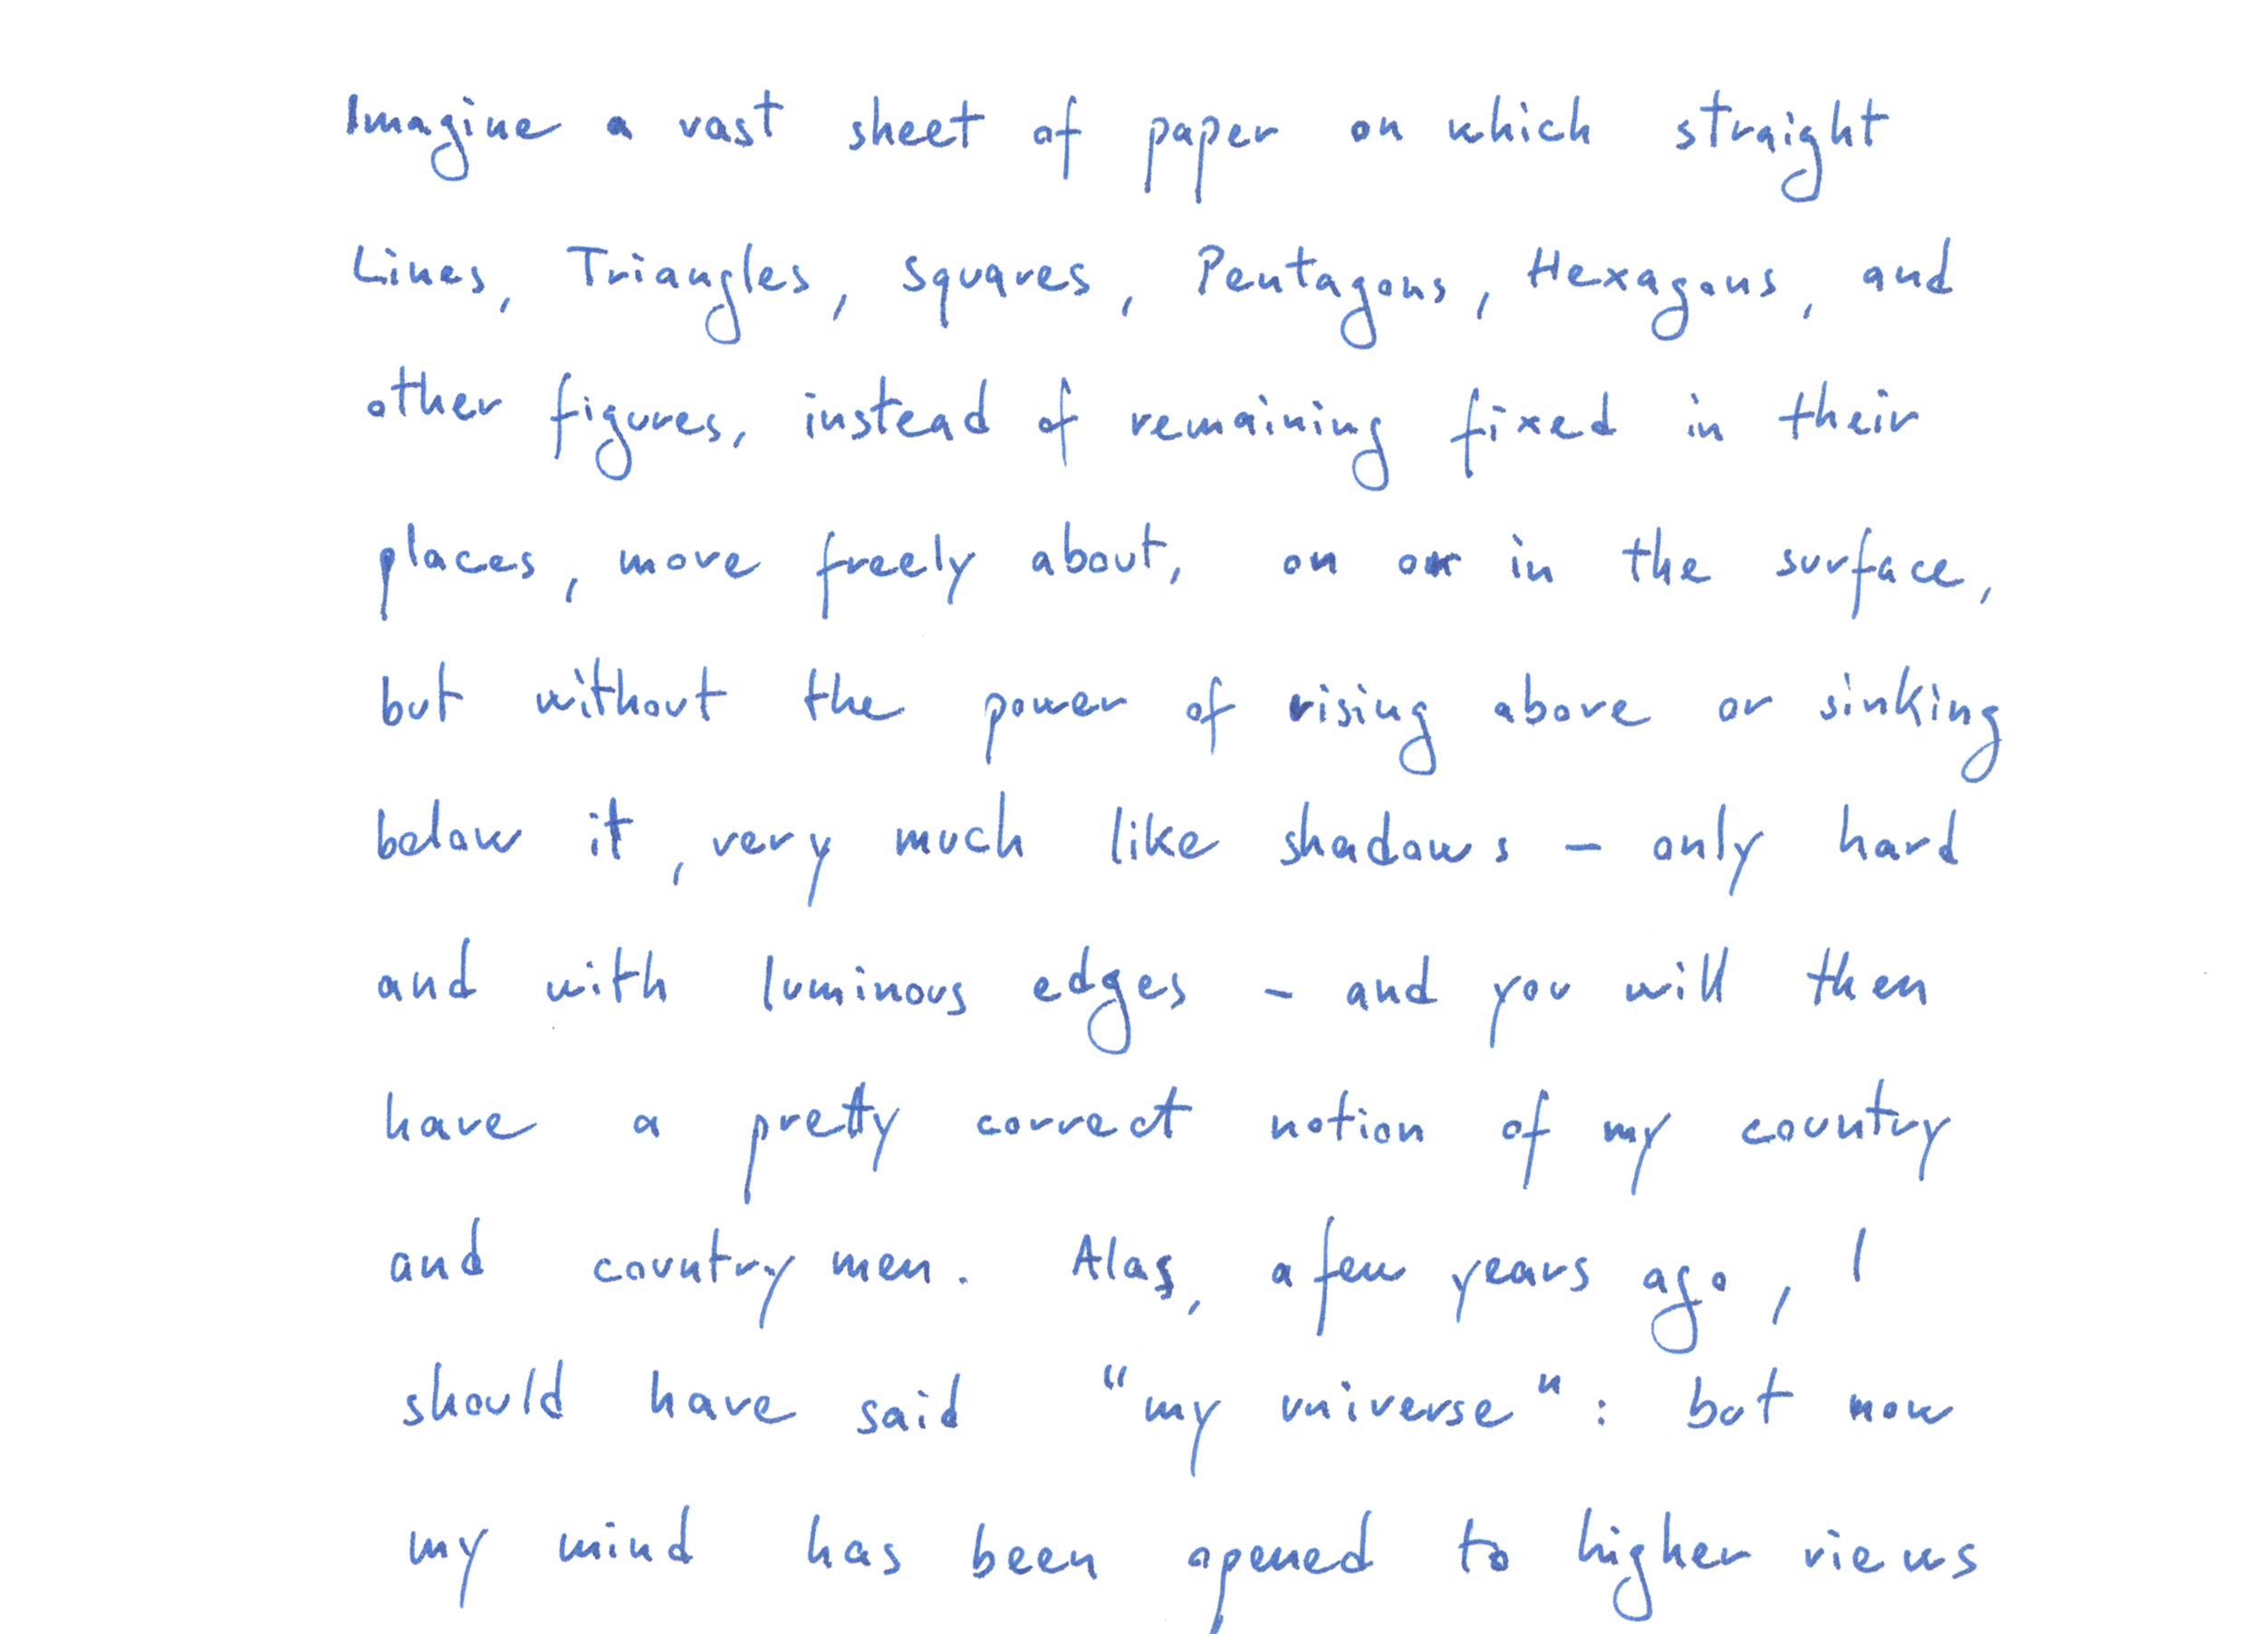 Imagine a vast sheet of paper on which straight
Lines, Triangles, Squares, Pentagons, Hexagons, and
other figures, instead of remaining fixed in their
places, move freely about, on or in the surface,
but without the power of rising above or sinking
below it, very much like shadows – only hard
and with luminous edges – and you will then
have a pretty correct notion of my country
and countrymen. Alas, a few years ago, I
should have said “my universe“: but now
my mind has been opened to higher views